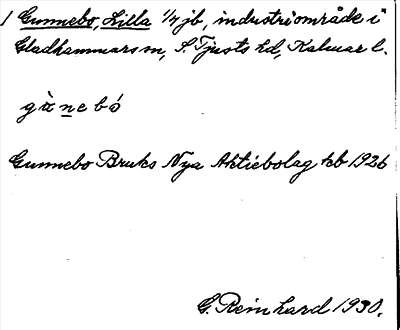 1 Gunnebo, Lilla 1/4 jb, industriområde i
Gladhammars sn, S. Tjusts hd, Kalmar l.
gùnebó
Gunnebo Bruks Nya Aktiebolag kb 1926
G. Reinhard 1930.